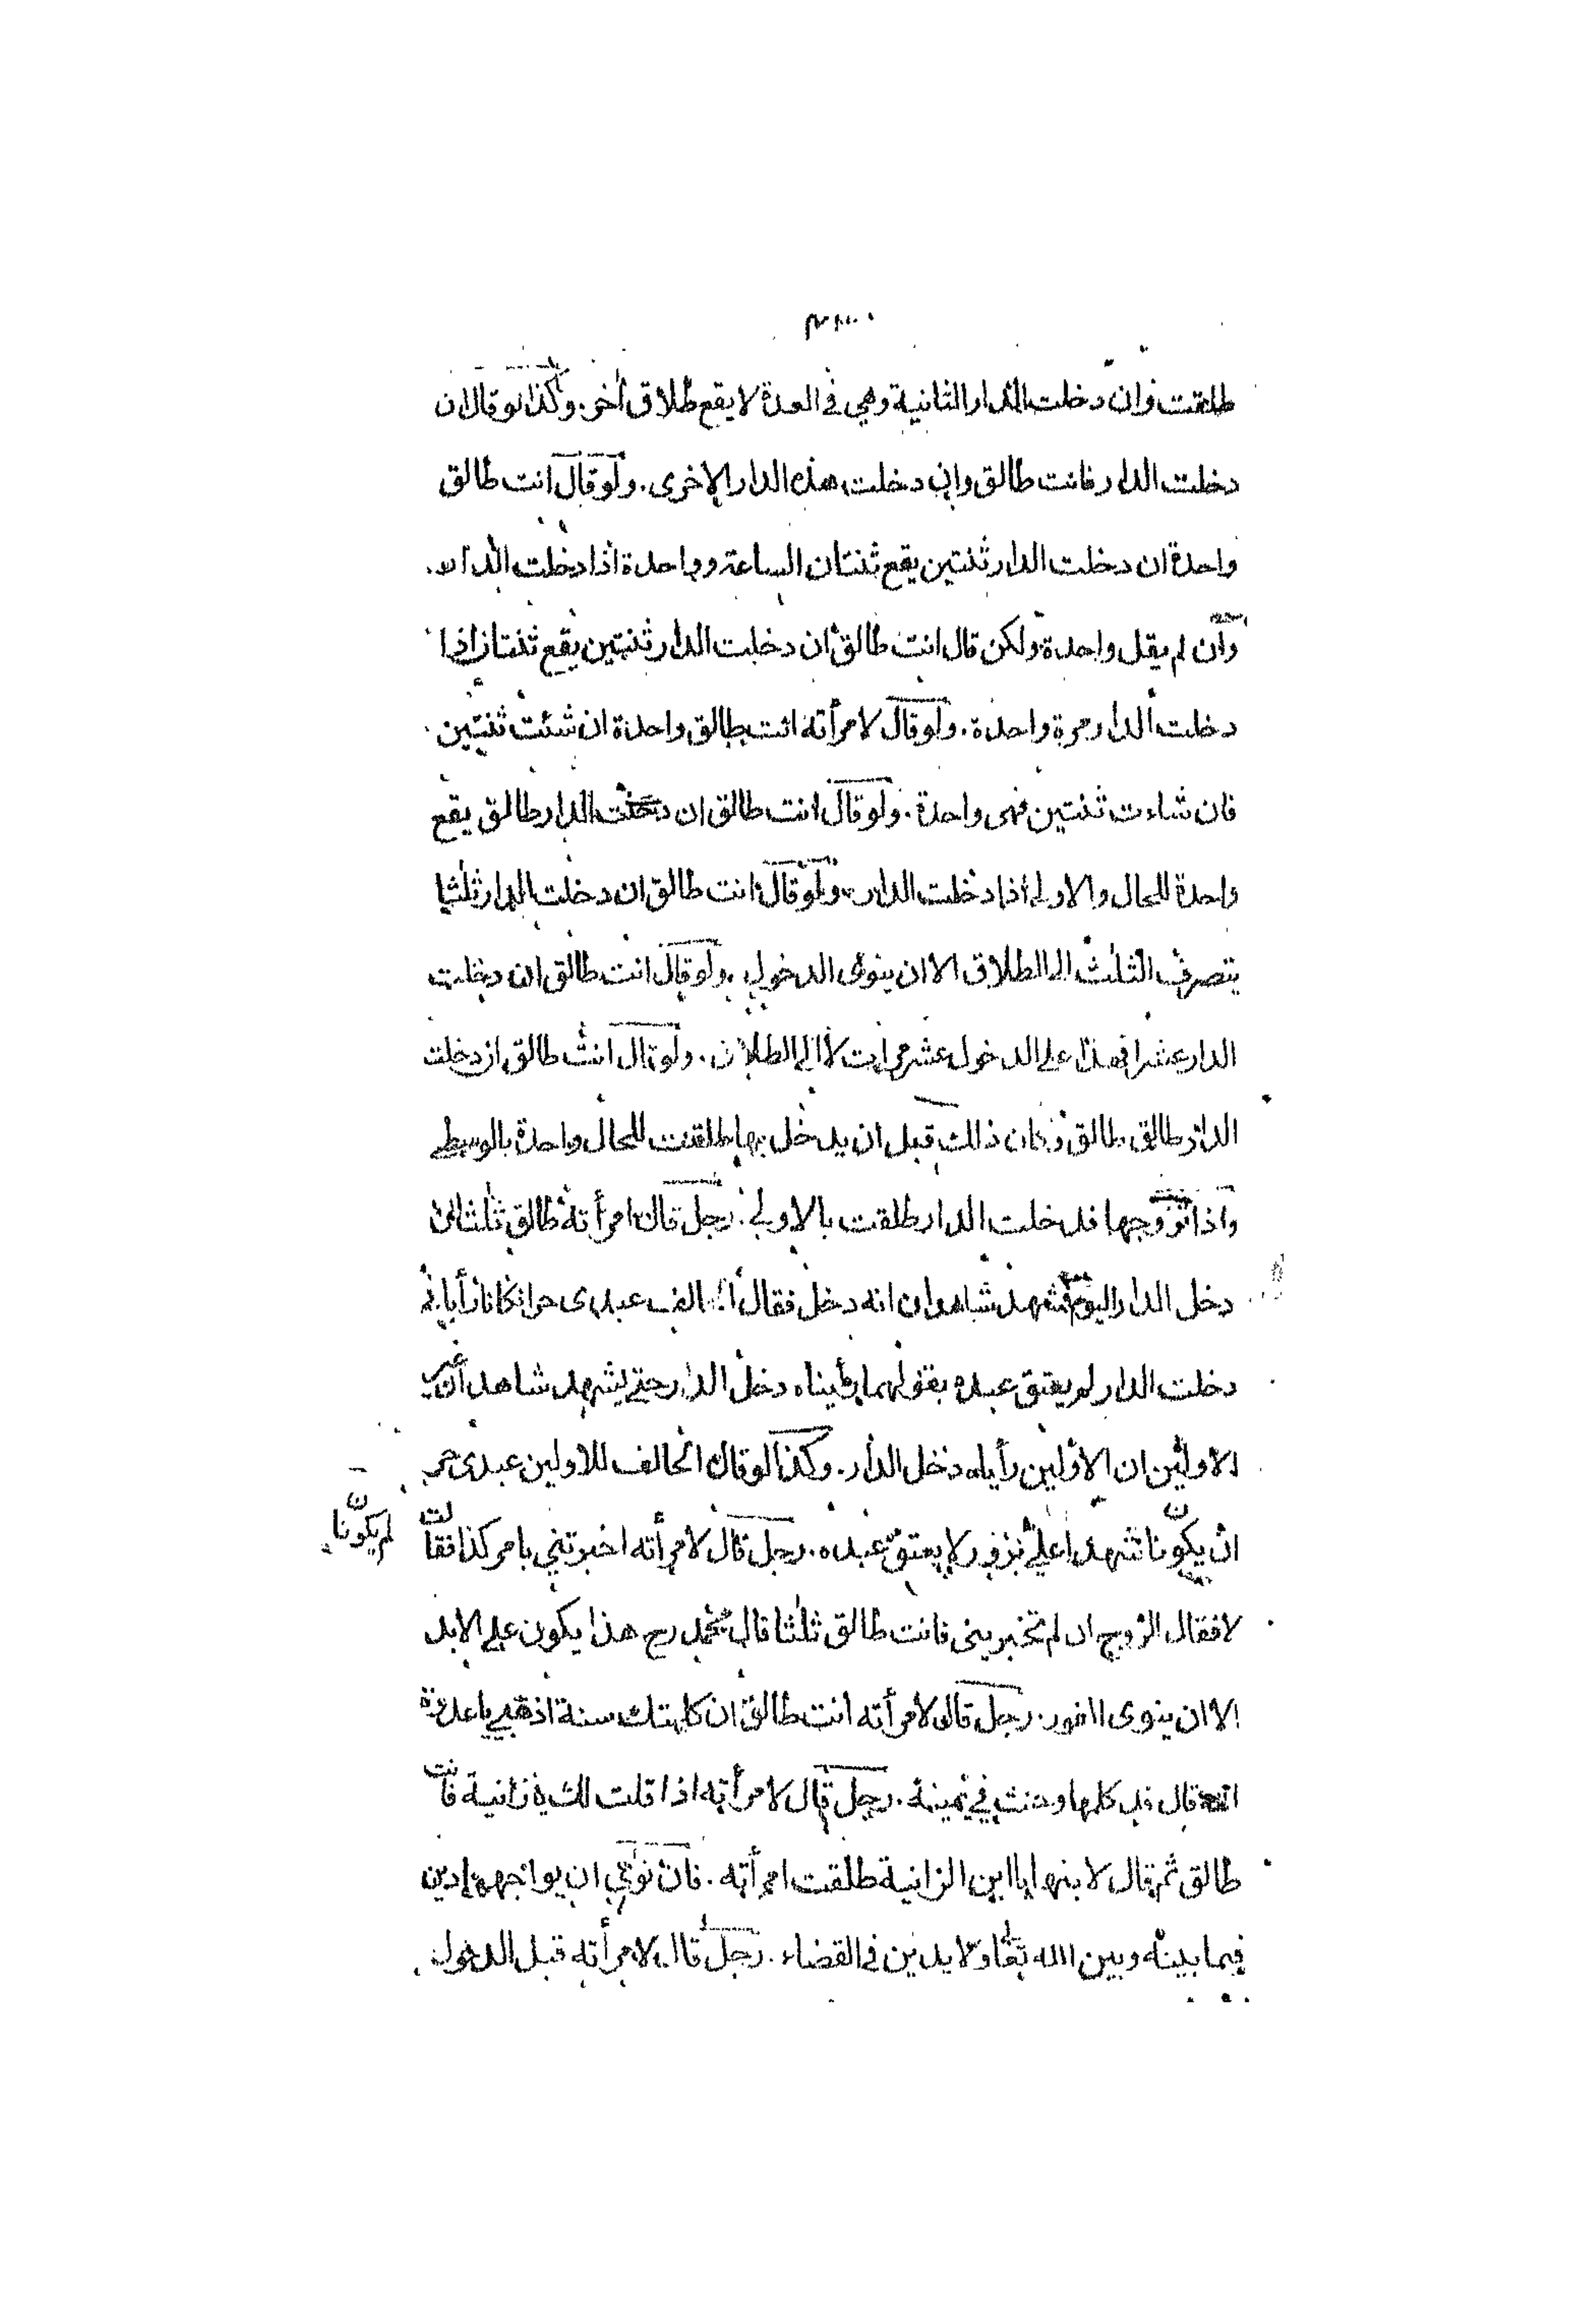 طلقت وان دخلت الدار الثانية وهي في العدة لا يقع طلاق أخر. وكذا لو قال ان
دخلت الدار فانت طالق وان دخلت هذه الدار الاخرى. ولو قال انت طالق
واحدة ان دخلت الدار ثنتين يقع ثنتان الساعة وواحدة اذا دخلت الدار.
وان لم يقل واحدة ولكن قال انت طالق ان دخلت الدار ثنتين يقع ثنتان اذا
دخلت الدار مرة واحدة. ولو قال لامرأته انت طالق واحدة ان شئت ثنتين
فان شاءت ثنتين فهى واحدة. ولو قال انت طالق ان دخلت الدار طالق يقع
واحدة للحال والاولى اذا دخلت الدار. ولو قال انت طالق ان دخلت الدار ثلثا
يتصرف الثلث الى الطلاق الا ان ينوى الدخول. ولو قال انت طالق ان دخلت
الدار عشرا فهذا على الدخول عشر مرات لا الى الطلاق. ولو قال انت طالق ان دخلت
الدار طالق طالق وكان ذلك قبل ان يدخل بها طلقت للحال واحدة بالوسطى
واذا تزوجها فدخلت الدار طلقت بالاولى. رجل قال امرأته طالق ثلثا ان
دخل الدار اليوم فشهد شاهدان انه دخل فقال الحالف عبدى حر ان كانا رأيانى
دخلت الدار لم يعتق عبده بقولهما رأيناه دخل الدار حتى يشهد شاهدان غير
الاولين ان الاولين رأياه دخل الدار. وكذا لو قال الحالف للاولين عبدى حر
ان يكونا شهدا على بزور لا يعتق عبده. رجل قال لامرأته اخبرتني بامر كذا فقالت
لم يكونا
لا فقال الزوج ان لم تخبرينى فانت طالق ثلثا قال محمد رح هذا يكون على الابد
الا ان ينوى الفور. رجل قال لامرأته انت طالق ان كلمتك سنة اذهبى يا عدوة
الله قال قد كلمها وحنث في يمينه. رجل قال لامرأته اذا قلت لك يا زانية فانت
طالق ثم قال لابنها يا ابن الزانية طلقت امرأته. فان نوى ان يواجهها دين
فيما بينه وبين الله تعا ولا يدين في القضاء. رجل قال لامرأته قبل الدخول